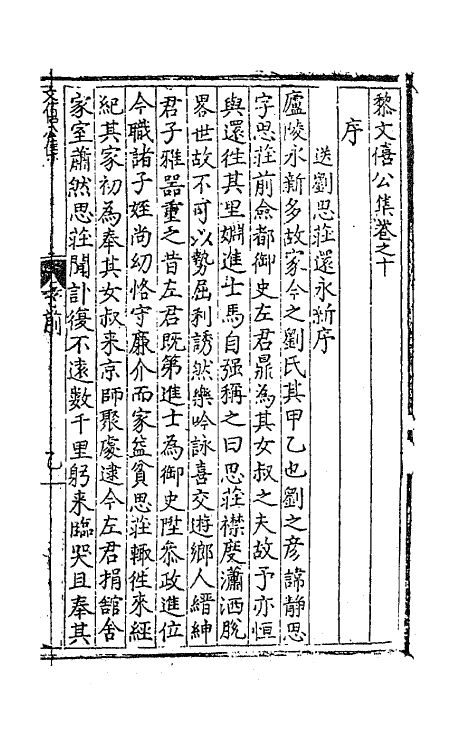 黎文僖公集卷之十
序
送劉思莊還永新序
廬陵永新多故家今之劉氏其甲乙也劉之彦諱靜思
字思莊前僉都御史左君鼎為其女叔之夫故予亦恒
與還徃其里婣進士馬自强稱之曰思莊襟度瀟洒脫
畧世故不可以勢屈利誘然樂吟詠喜交遊鄉人縉紳
君子雅器重之昔左君既第進士為御史陞叅政進位
今職諸子姪尚幼恪守廉介而家益貧思莊輙徃來經
紀其家初為奉其女叔来京師聚處逮今左君捐舘舍
家室蕭然思莊聞訃復不遠數千里躬来臨哭且奉其